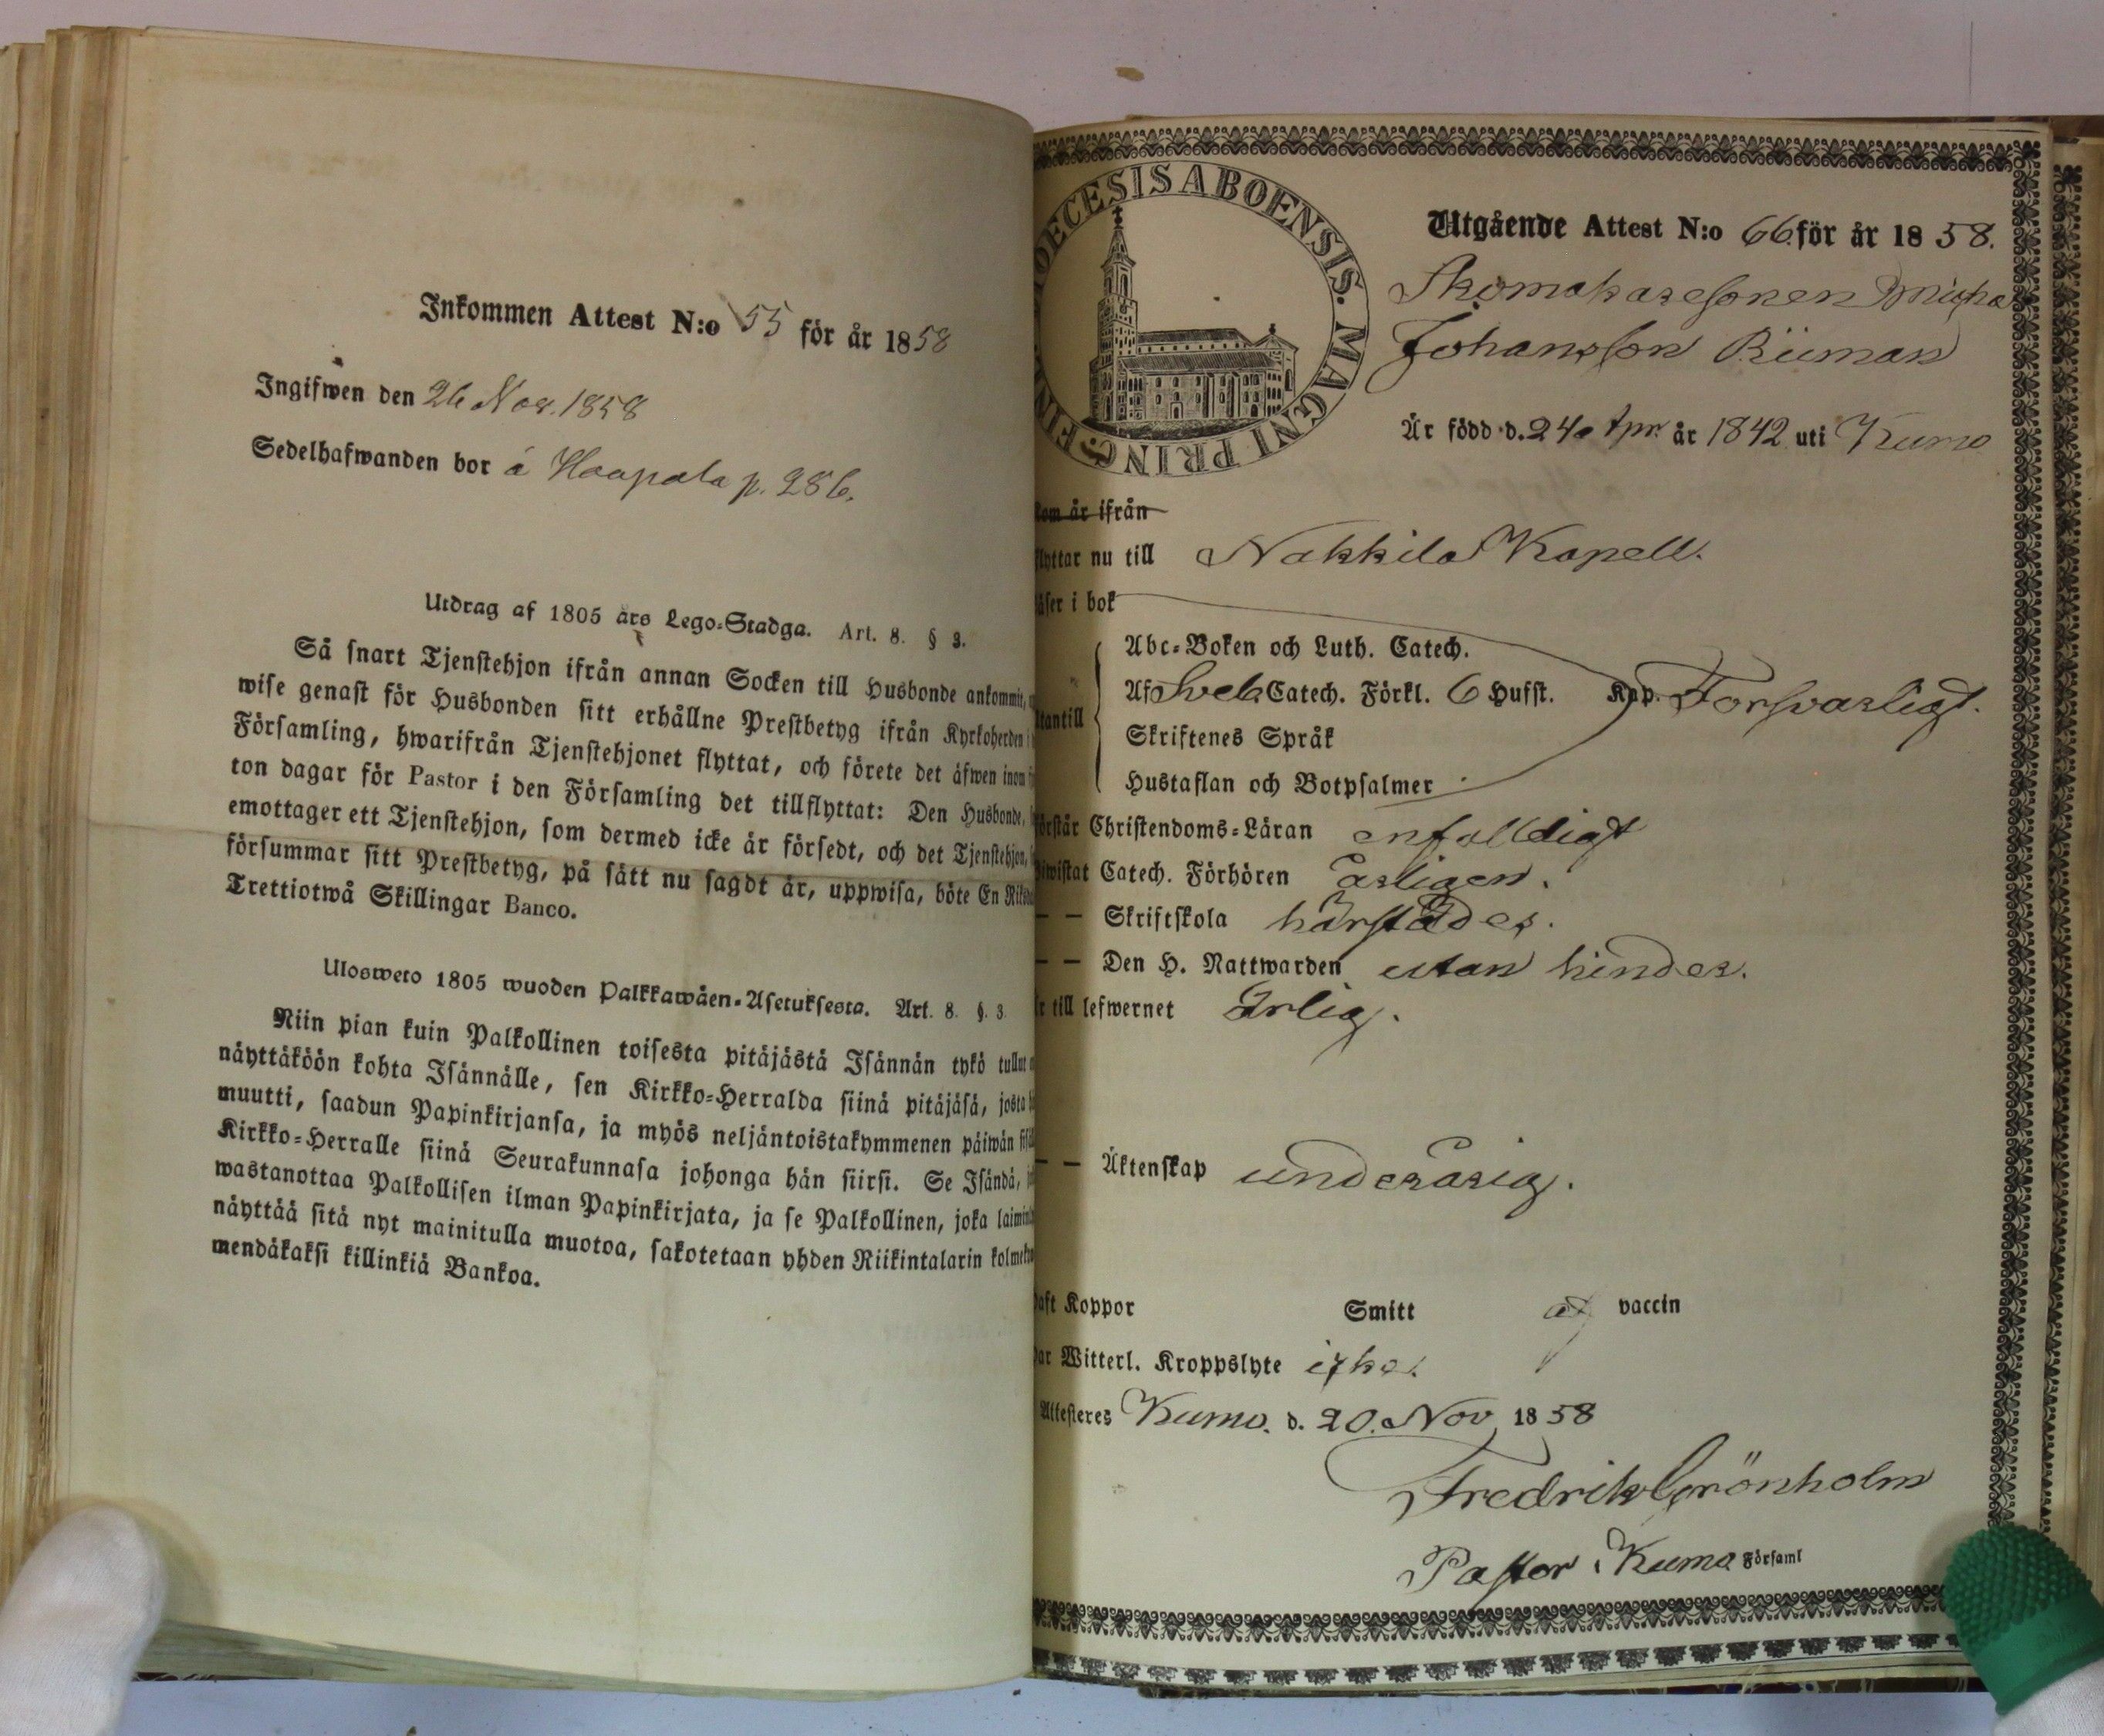 Inkommen Attest N:o 55 för år 1858
Ingifwen den 26 Nov. 1858
Sedelhafwanden bor å Haapala p. 286.
Utdrag af 1805 års Lego-Stadga. Art. 8. § 3.
Så snart Tjenstehjon ifrån annan Socken till Husbonde ankommit,
wise genast för Husbonden sitt erhållne Prestbetyg ifrån Kyrkoherden
Församling, hwarifrån Tjenstehjonet flyttat, och förete det äfwen inom
ton dagar för Pastor i den Församling det tillflyttat: Den Husbonde,
emottager ett Tjenstehjon, som dermed icke är försedt, och det Tjenstehjon,
försummar sitt Prestbetyg, på sätt nu sagdt är, uppwisa, böte En
Trettiotwå Skillingar Banco.
Ulosweto 1805 wuoden Palkkawäen-Asetuksesta. Art. 8. §. 3.
Niin pian kuin Palkollinen toisesta pitäjästä Isännän tykö tullut
näyttäköön kohta Isännälle, sen Kirkko-Herralda siinä pitäjäsä, josta
muutti, saadun Papinkirjansa, ja myös neljäntoistakymmenen päiwän
Kirkko-Herralle siinä Seurakunnasa johonga hän siirsi. Se Isändä,
wastanottaa Palkollisen ilman Papinkirjata, ja se Palkollinen, joka
näyttää sitä nyt mainitulla muotoa, sakotetaan yhden Riikintalarin
mendäkaksi killinkiä Bankoa.
DIOECESIS ABOENSIS. MAGNI PRINC. FIN
Utgående Attest N:o 66 för år 1858.
Skomakaresonen Micha
Johansson Riiman
Är född d. 24 Apr. år 1842 uti Kumo
är ifrån
flyttar nu till Nakkila Kapell.
läser i bok
Abc-Boken och Luth. Catech.
Af Sveb. Catech. Förkl. 6 Hufst. Kap. Försvarligt.
Utantill
Skriftenes Språk
Hustaflan och Botpsalmer
Förstår Christendoms-Läran enfalldigt
Biwistat Catech. Förhören årligen.
— — Skriftskola härstädes.
— — Den H. Nattwarden utan hinder.
Är till lefwernet Ärlig.
— — Äktenskap underårig.
Haft Koppor Smitt af vaccin
Har Witterl. Kroppslyte icke.
Attesteres Kumo. d. 20. Nov 1858
Fredrik Grönholm
Pastor i Kumo Församl